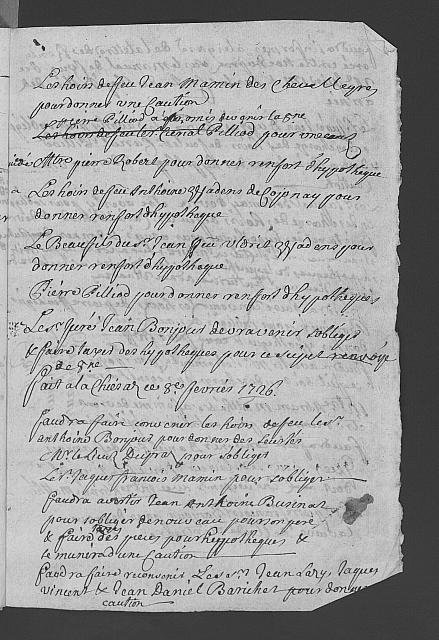 Les hoirs de feu Jean Mamin des Chevalleyres
pour donner une Caution
pierre Pilliod a promis de venir la Sne
Les hoirs de feu Pilliod pour une caut
Mtre pierre Robert pour donner renfort d'hypotheque
Les hoirs de feu Anthoine Wadens de Cojonay pour
donner renfort d'hypotheque
Le Beaufils du Sr. Jean Wadens pour
donner renfort d'hypotheque
Pierre Pilliod pour donner renfort d'hypotheques
Le Sr. Juré Jean Bonjour devra venir sobliger
& faire taxer des hypotheques pour ce sujet renvoye
de Sne
fait a la Chiesaz ce 8e fevrier 1726.
faudra faire convenir les hoirs de feu le Sr.
anthoine Bonjour pour donner des seurtés
Mr. le Lieut. Dupra pour sobliger
Le Sr. Jaques francois Mamin pour sobliger
faudra avertir Jean Anthoine Businat
pour sobliger de nouveau pour son pere
& faire taxer des pieces pour hyppotheques &
le munir d'une Caution
faudra faire reconvenir Les Srs. Jean Lary, Jaques
vincent & Jean Daniel Barichet pour donner
caution